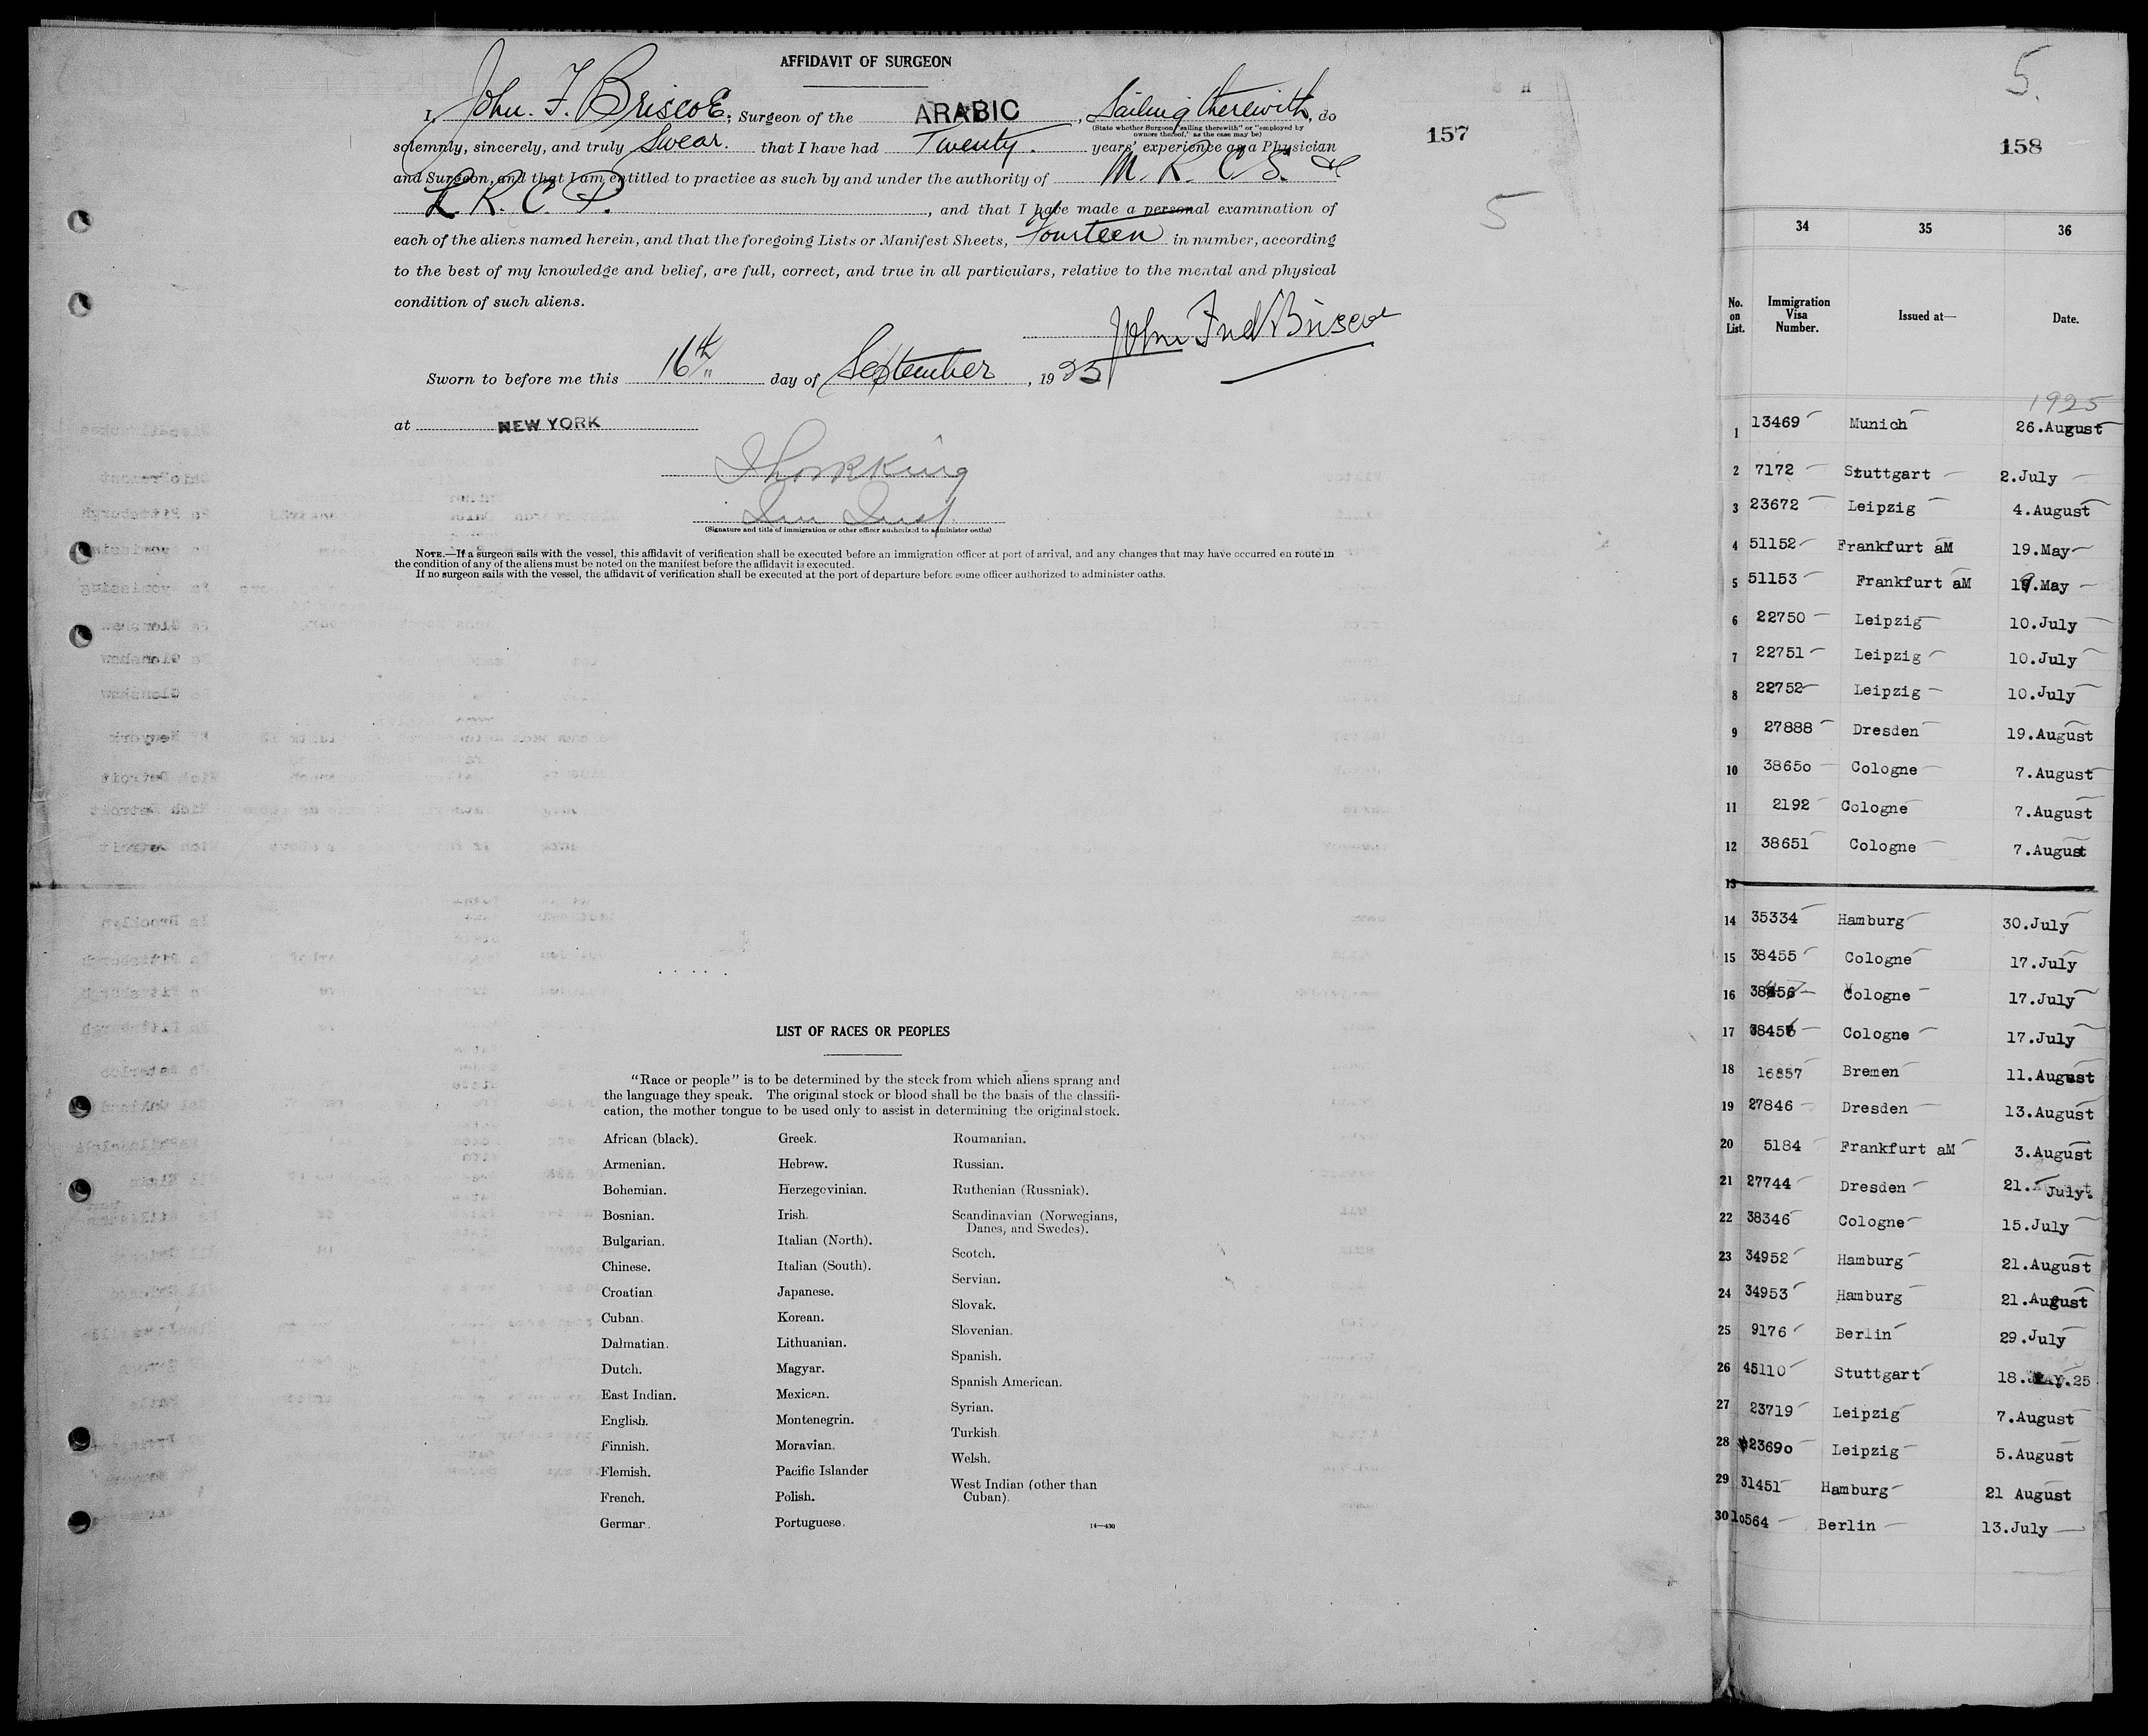 AFFIDAVIT OF SURGEON
I, John. F. Briscoe; Surgeon of the ARABIC, Sailing therewith, do
(State whether Surgeon "sailing therewith" or "employed by
owners thereof," as the case may be)
solemnly, sincerely, and truly Swear. that I have had Twenty. years' experience as a Physician
and Surgeon, and that I am entitled to practice as such by and under the authority of M. R. C. S. &
L. R. C. P. , and that I have made a personal examination of
each of the aliens named herein, and that the foregoing Lists or Manifest Sheets, fourteen in number, according
to the best of my knowledge and belief, are full, correct, and true in all particulars, relative to the mental and physical
condition of such aliens.
John Fred Briscoe
Sworn to before me this 16th day of September, 1925
at NEW YORK
(Signature and title of immigration or other officer authorized to administer oaths)
NOTE.—If a surgeon sails with the vessel, this affidavit of verification shall be executed before an immigration officer at port of arrival, and any changes that may have occurred en route in
the condition of any of the aliens must be noted on the manifest before the affidavit is executed.
If no surgeon sails with the vessel, the affidavit of verification shall be executed at the port of departure before some officer authorized to administer oaths.
157
5
LIST OF RACES OR PEOPLES
"Race or people" is to be determined by the stock from which aliens sprang and
the language they speak. The original stock or blood shall be the basis of the classifi-
cation, the mother tongue to be used only to assist in determining the original stock.
African (black).
Armenian.
Bohemian.
Bosnian.
Bulgarian.
Chinese.
Croatian
Cuban.
Dalmatian.
Dutch.
East Indian.
English.
Finnish.
Flemish.
French.
German.
Greek.
Hebrew.
Herzegovinian.
Irish.
Italian (North).
Italian (South).
Japanese.
Korean.
Lithuanian.
Magyar.
Mexican.
Montenegrin.
Moravian.
Pacific Islander
Polish.
Portuguese.
Roumanian.
Russian.
Ruthenian (Russniak).
Scandinavian (Norwegians,
Danes, and Swedes).
Scotch.
Servian.
Slovak.
Slovenian.
Spanish.
Spanish American.
Syrian.
Turkish.
Welsh.
West Indian (other than
Cuban).
14—430
5.
158
34 35 36
No. on List. Immigration Visa Number. Issued at— Date.
1925
1 13469 Munich 26.August
2 7172 Stuttgart 2.July
3 23672 Leipzig 4.August
4 51152 Frankfurt aM 19.May
5 51153 Frankfurt aM 19.May
6 22750 Leipzig 10.July
7 22751 Leipzig 10.July
8 22752 Leipzig 10.July
9 27888 Dresden 19.August
10 38650 Cologne 7.August
11 2192 Cologne 7.August
12 38651 Cologne 7.August
13
14 35334 Hamburg 30.July
15 38455 Cologne 17.July
16 Cologne 17.July
17 38456 Cologne 17.July
18 16857 Bremen 11.August
19 27846 Dresden 13.August
20 5184 Frankfurt aM 3.August
21 27744 Dresden 21. July.
22 38346 Cologne 15.July
23 34952 Hamburg 21.August
24 34953 Hamburg 21.August
25 9176 Berlin 29.July
26 45110 Stuttgart 18. .25
27 23719 Leipzig 7.August
28 23690 Leipzig 5.August
29 31451 Hamburg 21 August
30 10564 Berlin 13.July